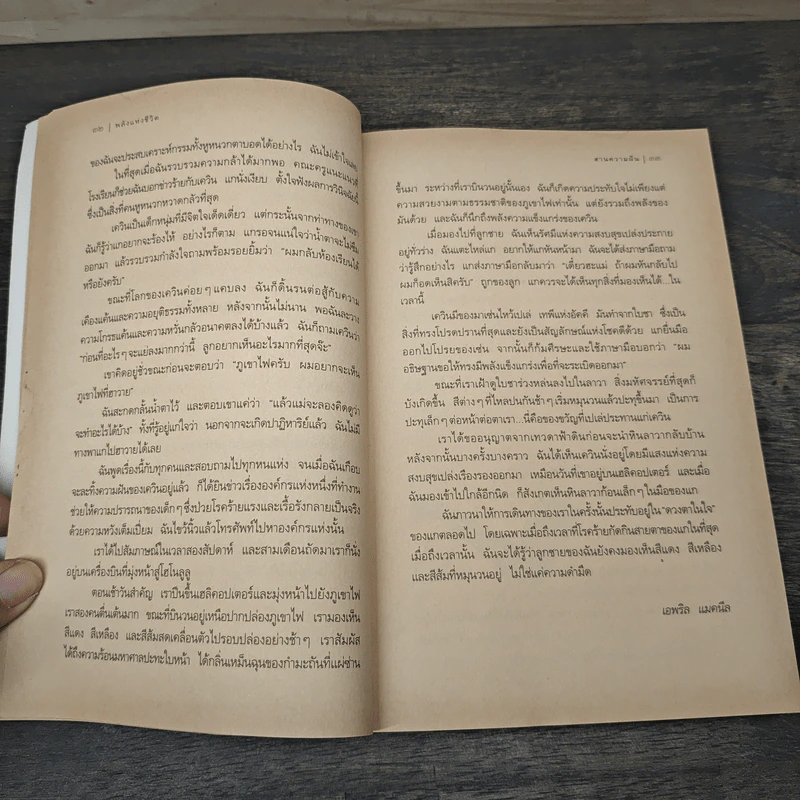 ๓๒ | พลังแห่งชีวิต
ของฉันจะประสบเคราะห์กรรมทั้งหูหนวกตาบอดได้อย่างไร ฉันไม่เข้าใจเลย
ในที่สุดเมื่อฉันรวบรวมความกล้าได้มากพอ คณะครูแนะแนวที่
โรงเรียนก็ช่วยฉันบอกข่าวร้ายกับเควิน แกนั่งเงียบ ตั้งใจฟังผลการวินิจฉัยนี้
ซึ่งเป็นสิ่งที่คนหูหนวกหวาดกลัวที่สุด
เควินเป็นเด็กหนุ่มที่มีจิตใจเด็ดเดี่ยว แต่กระนั้นจากท่าทางของเขา
ฉันก็รู้ว่าแกอยากจะร้องไห้ อย่างไรก็ตาม แกรอจนแน่ใจว่าน้ำตาจะไม่ซึม
ออกมา แล้วรวบรวมกำลังใจถามพร้อมรอยยิ้มว่า "ผมกลับห้องเรียนได้
หรือยังครับ"
ขณะที่โลกของเควินค่อยๆ แคบลง ฉันก็ดิ้นรนต่อสู้กับความ
เคืองแค้นและความอยุติธรรมทั้งหลาย หลังจากนั้นไม่นาน พอฉันละวาง
ความโกรธแค้นและความหวั่นกลัวอนาคตลงได้บ้างแล้ว ฉันก็ถามเควินว่า
"ก่อนที่อะไรๆ จะแย่ลงมากกว่านี้ ลูกอยากเห็นอะไรมากที่สุดจ๊ะ"
เขาคิดอยู่ชั่วขณะก่อนจะตอบว่า "ภูเขาไฟครับ ผมอยากจะเห็น
ภูเขาไฟที่ฮาวาย"
ฉันสะกดกลั้นน้ำตาไว้ และตอบเขาแค่ว่า "แล้วแม่จะลองคิดดูว่า
จะทำอะไรได้บ้าง" ทั้งที่รู้อยู่แก่ใจว่า นอกจากจะเกิดปาฏิหาริย์แล้ว ฉันไม่มี
ทางพาแกไปฮาวายได้เลย
ฉันพูดเรื่องนี้กับทุกคนและสอบถามไปทุกหนแห่ง จนเมื่อฉันเกือบ
จะละทิ้งความฝันของเควินอยู่แล้ว ก็ได้ยินข่าวเรื่ององค์กรแห่งหนึ่งที่ทำงาน
ช่วยให้ความปรารถนาของเด็กๆ ซึ่งป่วยโรคร้ายแรงและเรื้อรังกลายเป็นจริง
ด้วยความหวังเต็มเปี่ยม ฉันไขว้นิ้วแล้วโทรศัพท์ไปหาองค์กรแห่งนั้น
เราได้ไปสัมภาษณ์ในเวลาสองสัปดาห์ และสามเดือนถัดมาเราก็นั่ง
อยู่บนเครื่องบินที่มุ่งหน้าสู่โฮโนลูลู
ตอนเช้าวันสำคัญ เราปีนขึ้นเฮลิคอปเตอร์และมุ่งหน้าไปยังภูเขาไฟ
เราสองคนตื่นเต้นมาก ขณะที่บินวนอยู่เหนือปากปล่องภูเขาไฟ เรามองเห็น
สีแดง สีเหลือง และสีส้มสดเคลื่อนตัวไปรอบปล่องอย่างช้าๆ เราสัมผัส
ได้ถึงความร้อนมหาศาลปะทะใบหน้า ได้กลิ่นเหม็นฉุนของกำมะถันที่แผ่ซ่าน
สานความฝัน | ๓๓
ขึ้นมา ระหว่างที่เราบินวนอยู่นั้นเอง ฉันก็เกิดความประทับใจไม่เพียงแต่
ความสวยงามตามธรรมชาติของภูเขาไฟเท่านั้น แต่ยังรวมถึงพลังของ
มันด้วย และฉันก็นึกถึงพลังความแข็งแกร่งของเควิน
เมื่อมองไปที่ลูกชาย ฉันเห็นรัศมีแห่งความสงบสุขเปล่งประกาย
อยู่ทั่วร่าง ฉันแตะไหล่แก อยากให้แกหันหน้ามา ฉันจะได้ส่งภาษามือถาม
ว่ารู้สึกอย่างไร แกส่งภาษามือกลับมาว่า "เดี๋ยวฮะแม่ ถ้าผมหันกลับไป
ผมก็อดเห็นสิครับ" ถูกของลูก แกควรจะได้เห็นทุกสิ่งที่มองเห็นได้...ใน
เวลานี้
เควินมีของมาเซ่นไหว้เปเล่ เทพีแห่งอัคคี มันทำจากใบชา ซึ่งเป็น
สิ่งที่ทรงโปรดปรานที่สุดและยังเป็นสัญลักษณ์แห่งโชคดีด้วย แกยื่นมือ
ออกไปโปรยของเซ่น จากนั้นก็ก้มศีรษะและใช้ภาษามือบอกว่า "ผม
อธิษฐานขอให้ทรงมีพลังแข็งแกร่งเพื่อที่จะระเบิดออกมา"
ขณะที่เราเฝ้าดูใบชาร่วงหล่นลงไปในลาวา สิ่งมหัศจรรย์ที่สุดก็
บังเกิดขึ้น สีต่างๆ ที่ไหลปนกันช้าๆ เริ่มหมุนวนแล้วปะทุขึ้นมา เป็นการ
ปะทุเล็กๆ ต่อหน้าต่อตาเรา...นี่คือของขวัญที่เปเล่ประทานแก่เควิน
เราได้ขออนุญาตจากเทวดาฟ้าดินก่อนจะนำหินลาวากลับบ้าน
หลังจากนั้นบางครั้งบางคราว ฉันได้เห็นเควินนั่งอยู่โดยมีแสงแห่งความ
สงบสุขเปล่งเรืองรองออกมา เหมือนวันที่เขาอยู่บนเฮลิคอปเตอร์ และเมื่อ
ฉันมองเข้าไปใกล้อีกนิด ก็สังเกตเห็นหินลาวาก้อนเล็กๆ ในมือของแก
ฉันภาวนาให้การเดินทางของเราในครั้งนั้นประทับอยู่ใน "ดวงตาในใจ"
ของแกตลอดไป โดยเฉพาะเมื่อถึงเวลาที่โรคร้ายกัดกินสายตาของแกในที่สุด
เมื่อถึงเวลานั้น ฉันจะได้รู้ว่าลูกชายของฉันยังคงมองเห็นสีแดง สีเหลือง
และสีส้มที่หมุนวนอยู่ ไม่ใช่แค่ความดำมืด
เอพริล แมคนีล